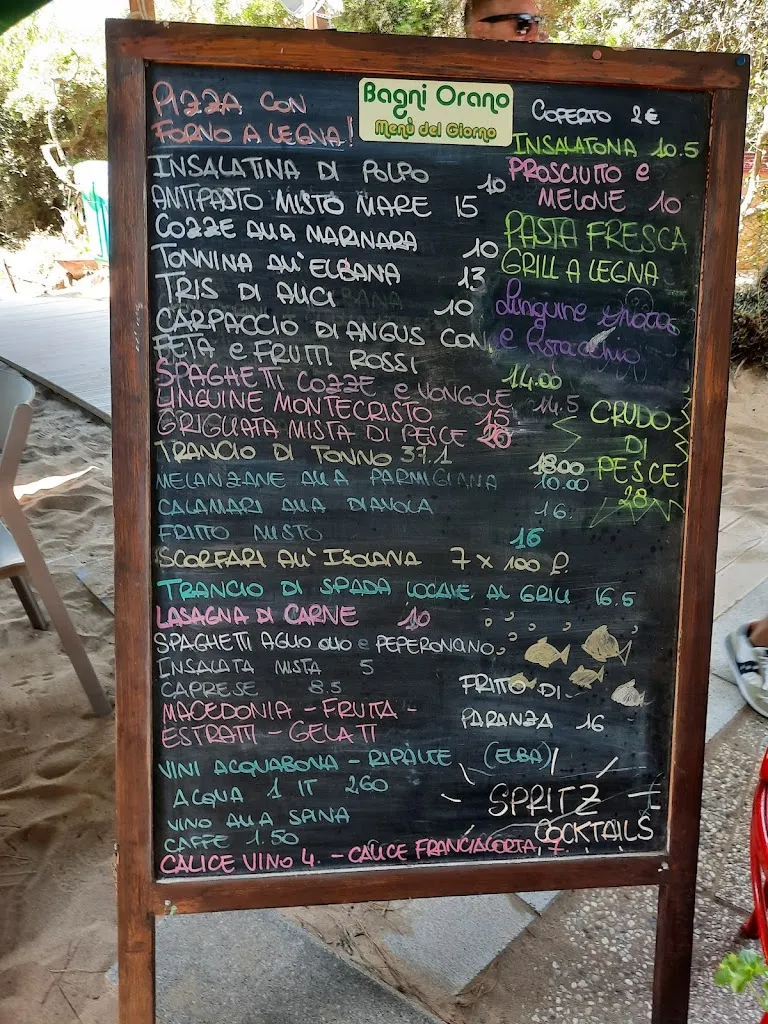 PIZZA CON
FORNO A LEGNA!
Bagni Orano
Menù del Giorno
COPERTO 2€
INSALATONA 10.5
PROSCIUTTO e
MELONE 10
PASTA FRESCA
GRILL A LEGNA
Linguine
e Pistacchio
CRUDO
DI
PESCE
28
INSALATINA DI POLPO 10
ANTIPASTO MISTO MARE 15
COZZE ALLA MARINARA 10
TONNINA ALL'ELBANA 13
TRIS DI ALICI 10
CARPACCIO DI ANGUS CON
FETA e FRUTTI ROSSI 14.00
SPAGHETTI COZZE e VONGOLE 14.5
LINGUINE MONTECRISTO 15
GRIGLIATA MISTA DI PESCE 20
TRANCIO DI TONNO 37.1 18.00
MELANZANE ALLA PARMIGIANA 10.00
CALAMARI ALLA DIAVOLA 16
FRITTO MISTO 16
SCORFARI ALL'ISOLANA 7 x 100 g.
TRANCIO DI SPADA LOCALE AL GRILL 16.5
LASAGNA DI CARNE 10
SPAGHETTI AGLIO OLIO e PEPERONCINO
INSALATA MISTA 5
CAPRESE 8.5
FRITTO DI
PARANZA 16
MACEDONIA - FRUTTA -
ESTRATTI - GELATI
VINI ACQUABONA - RIPALTE (ELBA)
ACQUA 1 lT 2.60
VINO ALLA SPINA
CAFFE 1.50
SPRITZ
COCKTAILS
CALICE VINO 4. - CALICE FRANCIACORTA 7